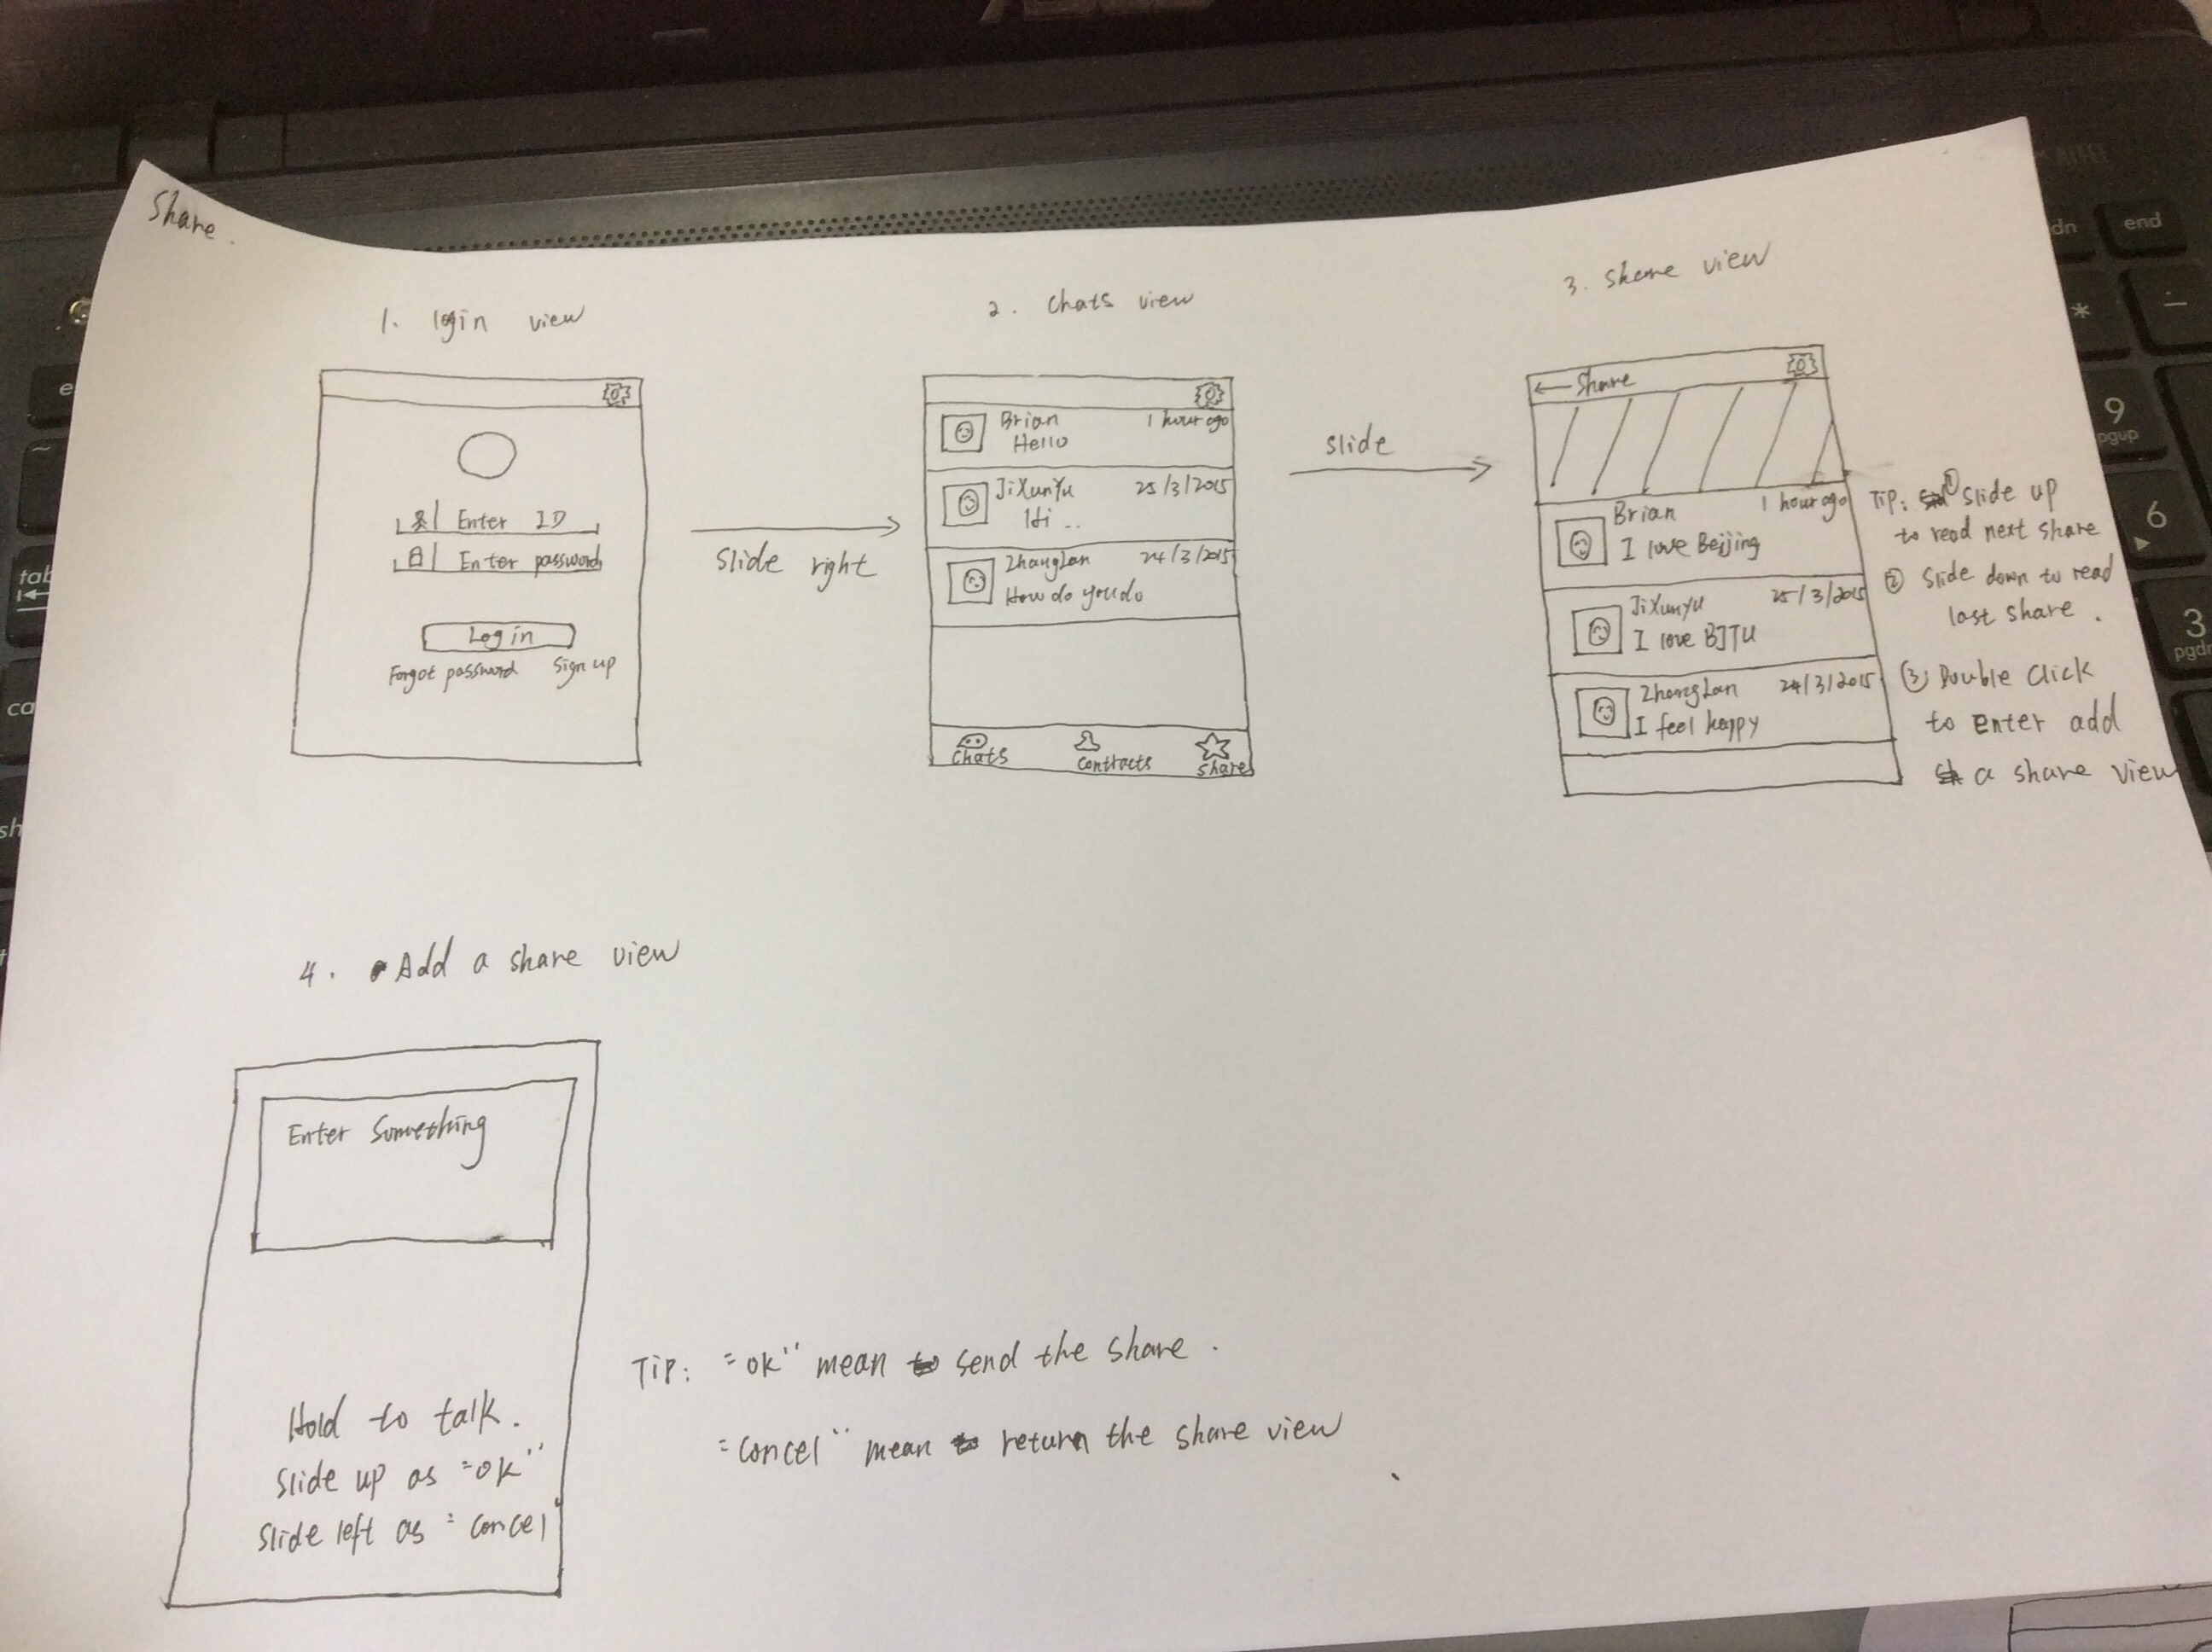 Share.
1. login view
Enter ID
Enter password
Log in
Forgot password Sign up
slide right
2. Chats view
Brian 1 hour ago
Hello
JiXunYu 25/3/2015
Hi ..
ZhangLan 24/3/2015
How do you do
Chats Contracts Share
slide
3. share view
← Share
Brian 1 hour ago
I love Beijing
JiXunYu 25/3/2015
I love BJTU
ZhangLan 24/3/2015
I feel happy
Tip: ① slide up
to read next share
② slide down to read
last share .
③ Double click
to enter add
a share view
4. Add a share view
Enter something
Hold to talk.
slide up as "ok"
slide left as "cancel
Tip: "ok" mean send the share .
"cancel" mean return the share view
end
dn
*
9
pgup
6
3
tab